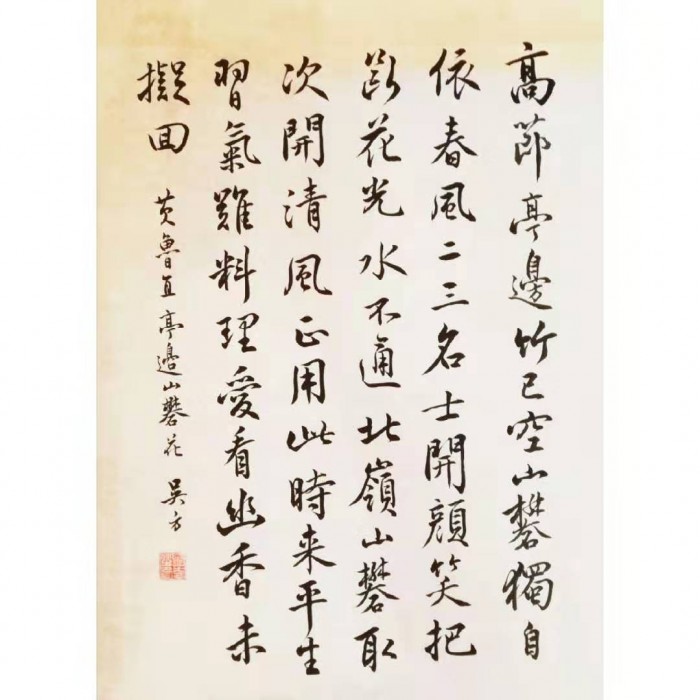 高節亭邊竹已空山礬獨自
依春風二三名士開顔笑把
斷花光水不通北嶺山礬取
次開清風正用此時来平生
習氣難料理愛看幽香未
擬回
黄魯直亭邊山礬花 吴方